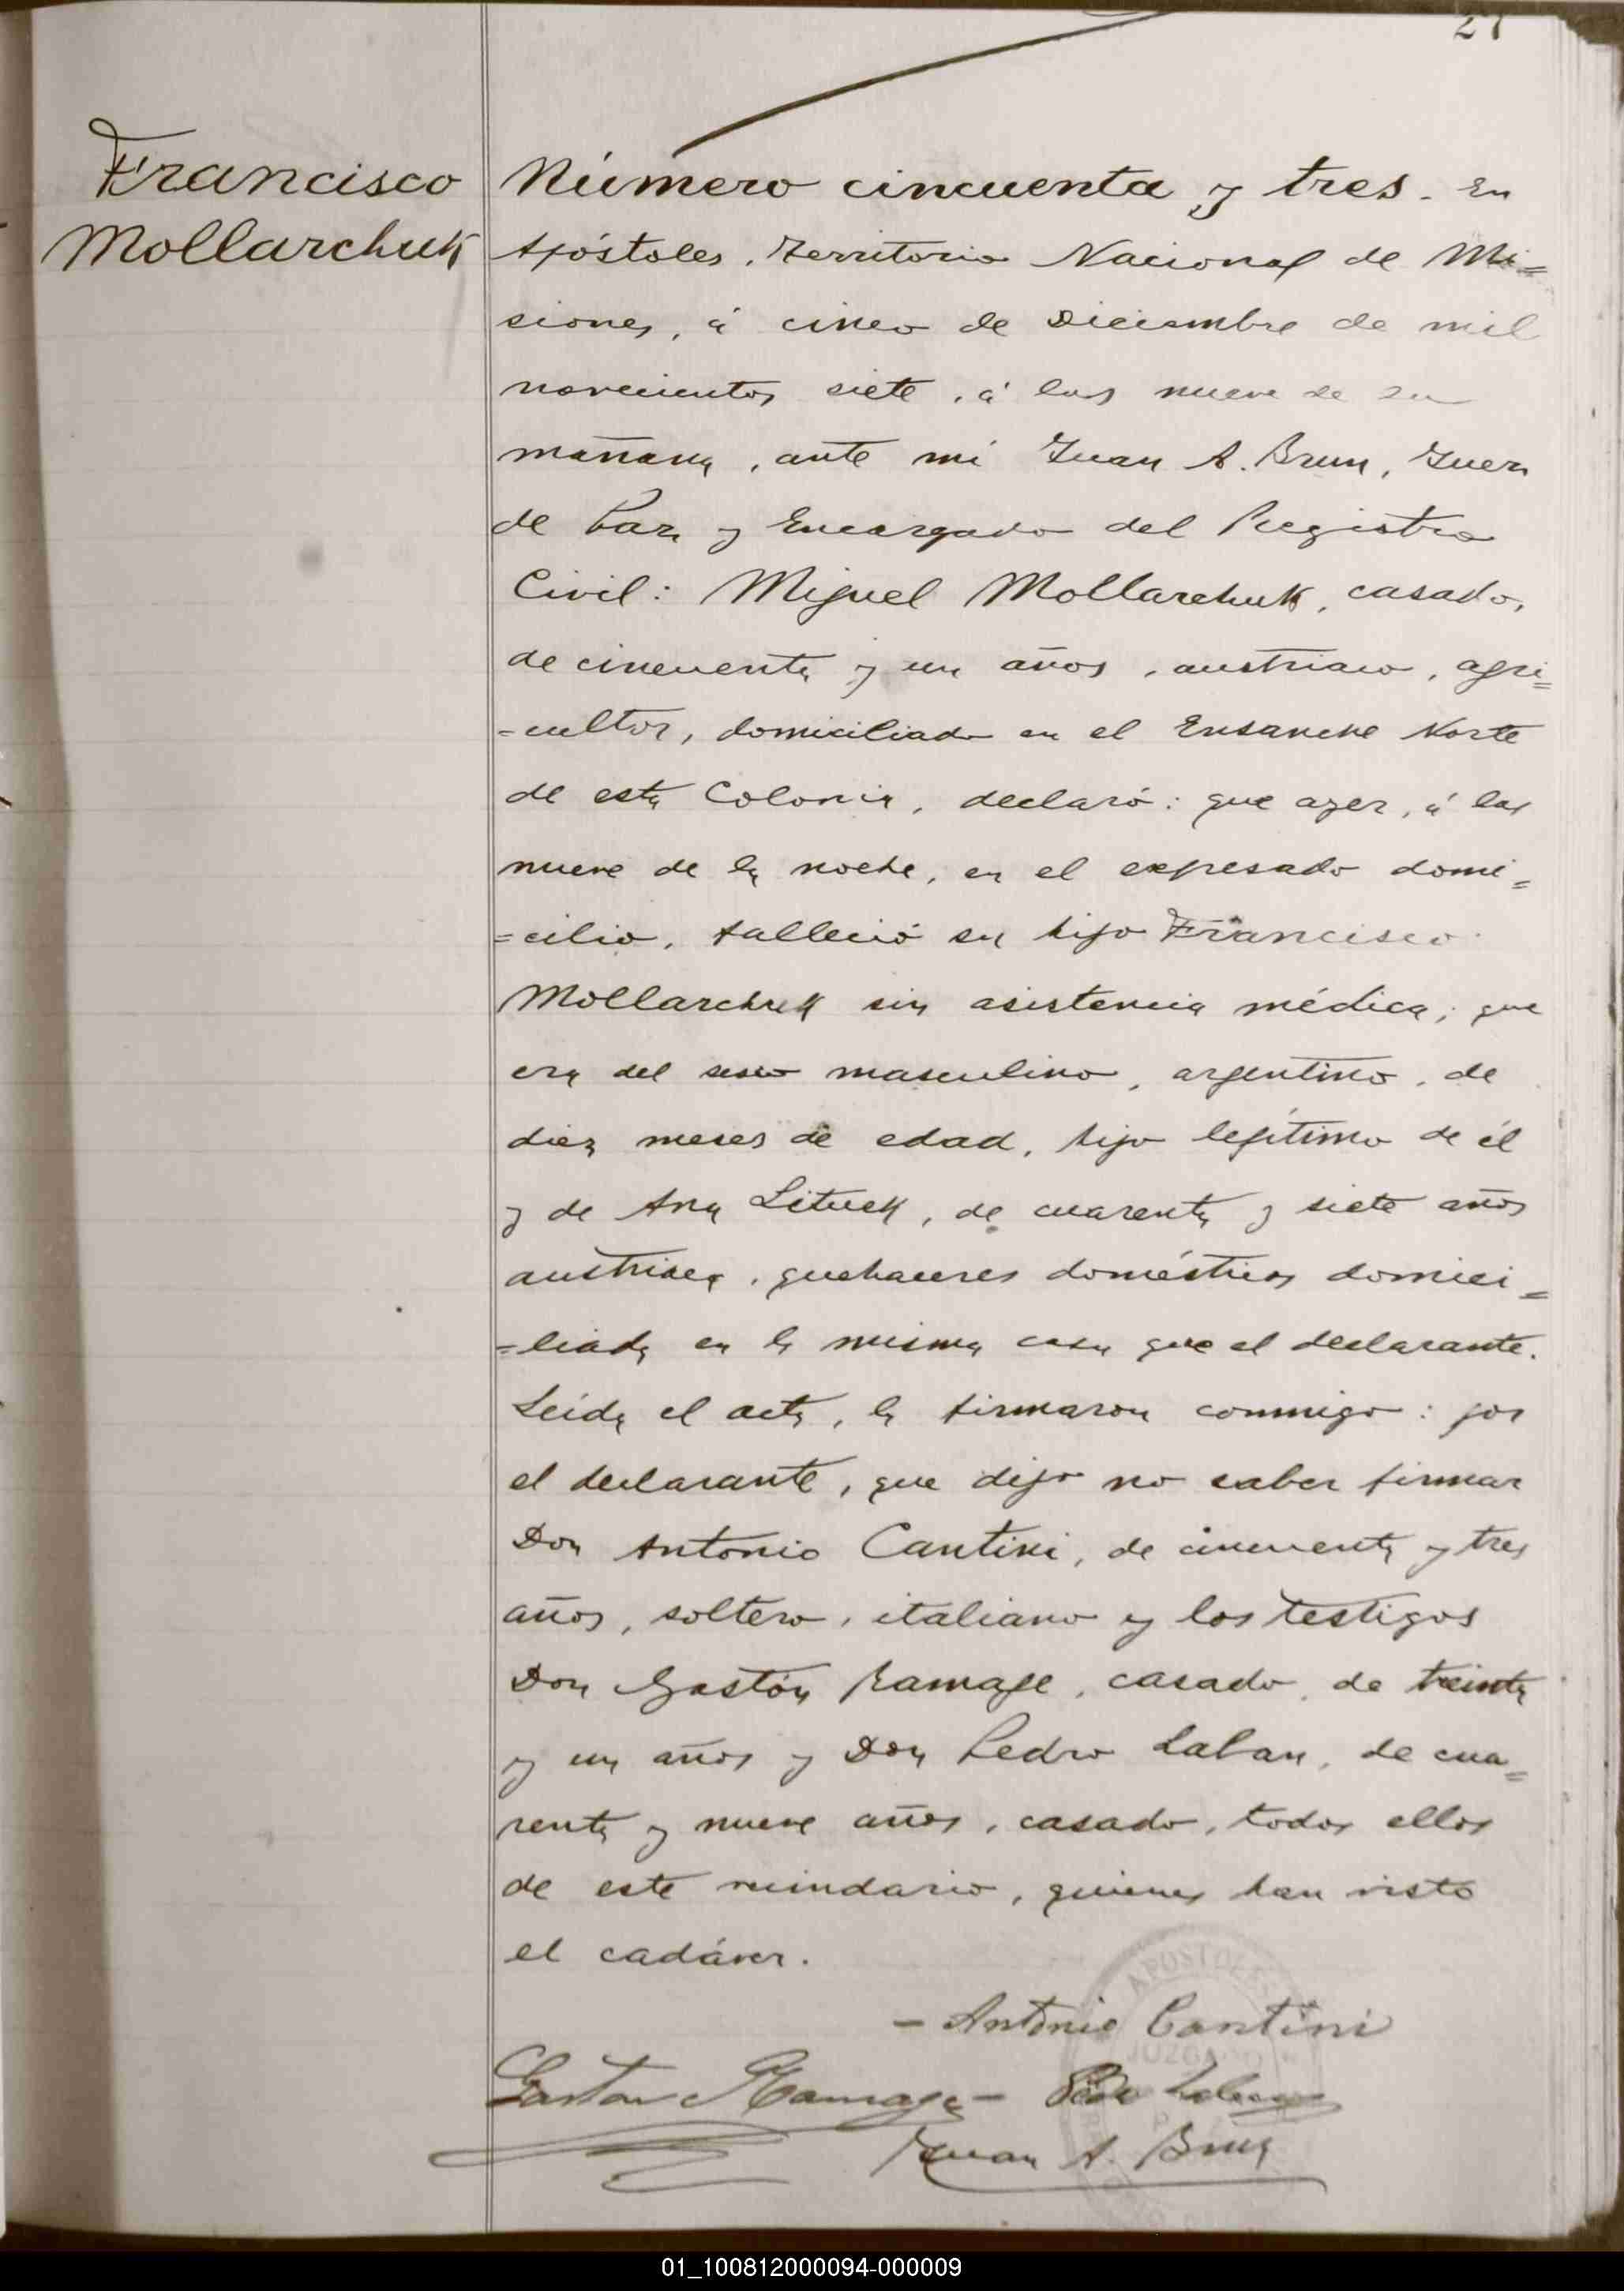 27
Francisco
Mollarchuk
Número cincuenta y tres. En
Apóstoles, Territorio Nacional de Mi=
siones, á cinco de Diciembre de mil
novecientos siete, á las nueve de la
mañana, ante mi Juan A. Brun, Juez
de Paz y Encargado del Registro
Civil: Miguel Mollarchuk, casado,
de cincuenta y un años, austriaco, agri=
-cultor, domiciliado en el Ensanche Norte
de esta Colonia, declaró: que ayer, á las
nueve de la noche, en el expresado domi=
=cilio, falleció su hijo Francisco
Mollarchuk sin asistencia médica; que
era del sexo masculino, argentino, de
diez meses de edad, hijo legítimo de él
y de Ana Lituck, de cuarenta y siete años
austriaca, quehaceres domésticos domici=
=liada en la misma casa que el declarante.
Leída el acta, la firmaron conmigo: por
el declarante, que dijo no saber firmar
Don Antonio Cantini, de cincuenta y tres
años, soltero, italiano y los testigos
Don Gastón Ramage, casado, de treinta
y un años y Don Pedro Laban, de cua=
renta y nueve años, casado, todos ellos
de este vecindario, quienes han visto
el cadáver.
- Antonio Cantini
Gaston Ramage -
Juan A. Brun
APOSTOLES
JUZGADO
01_100812000094-000009